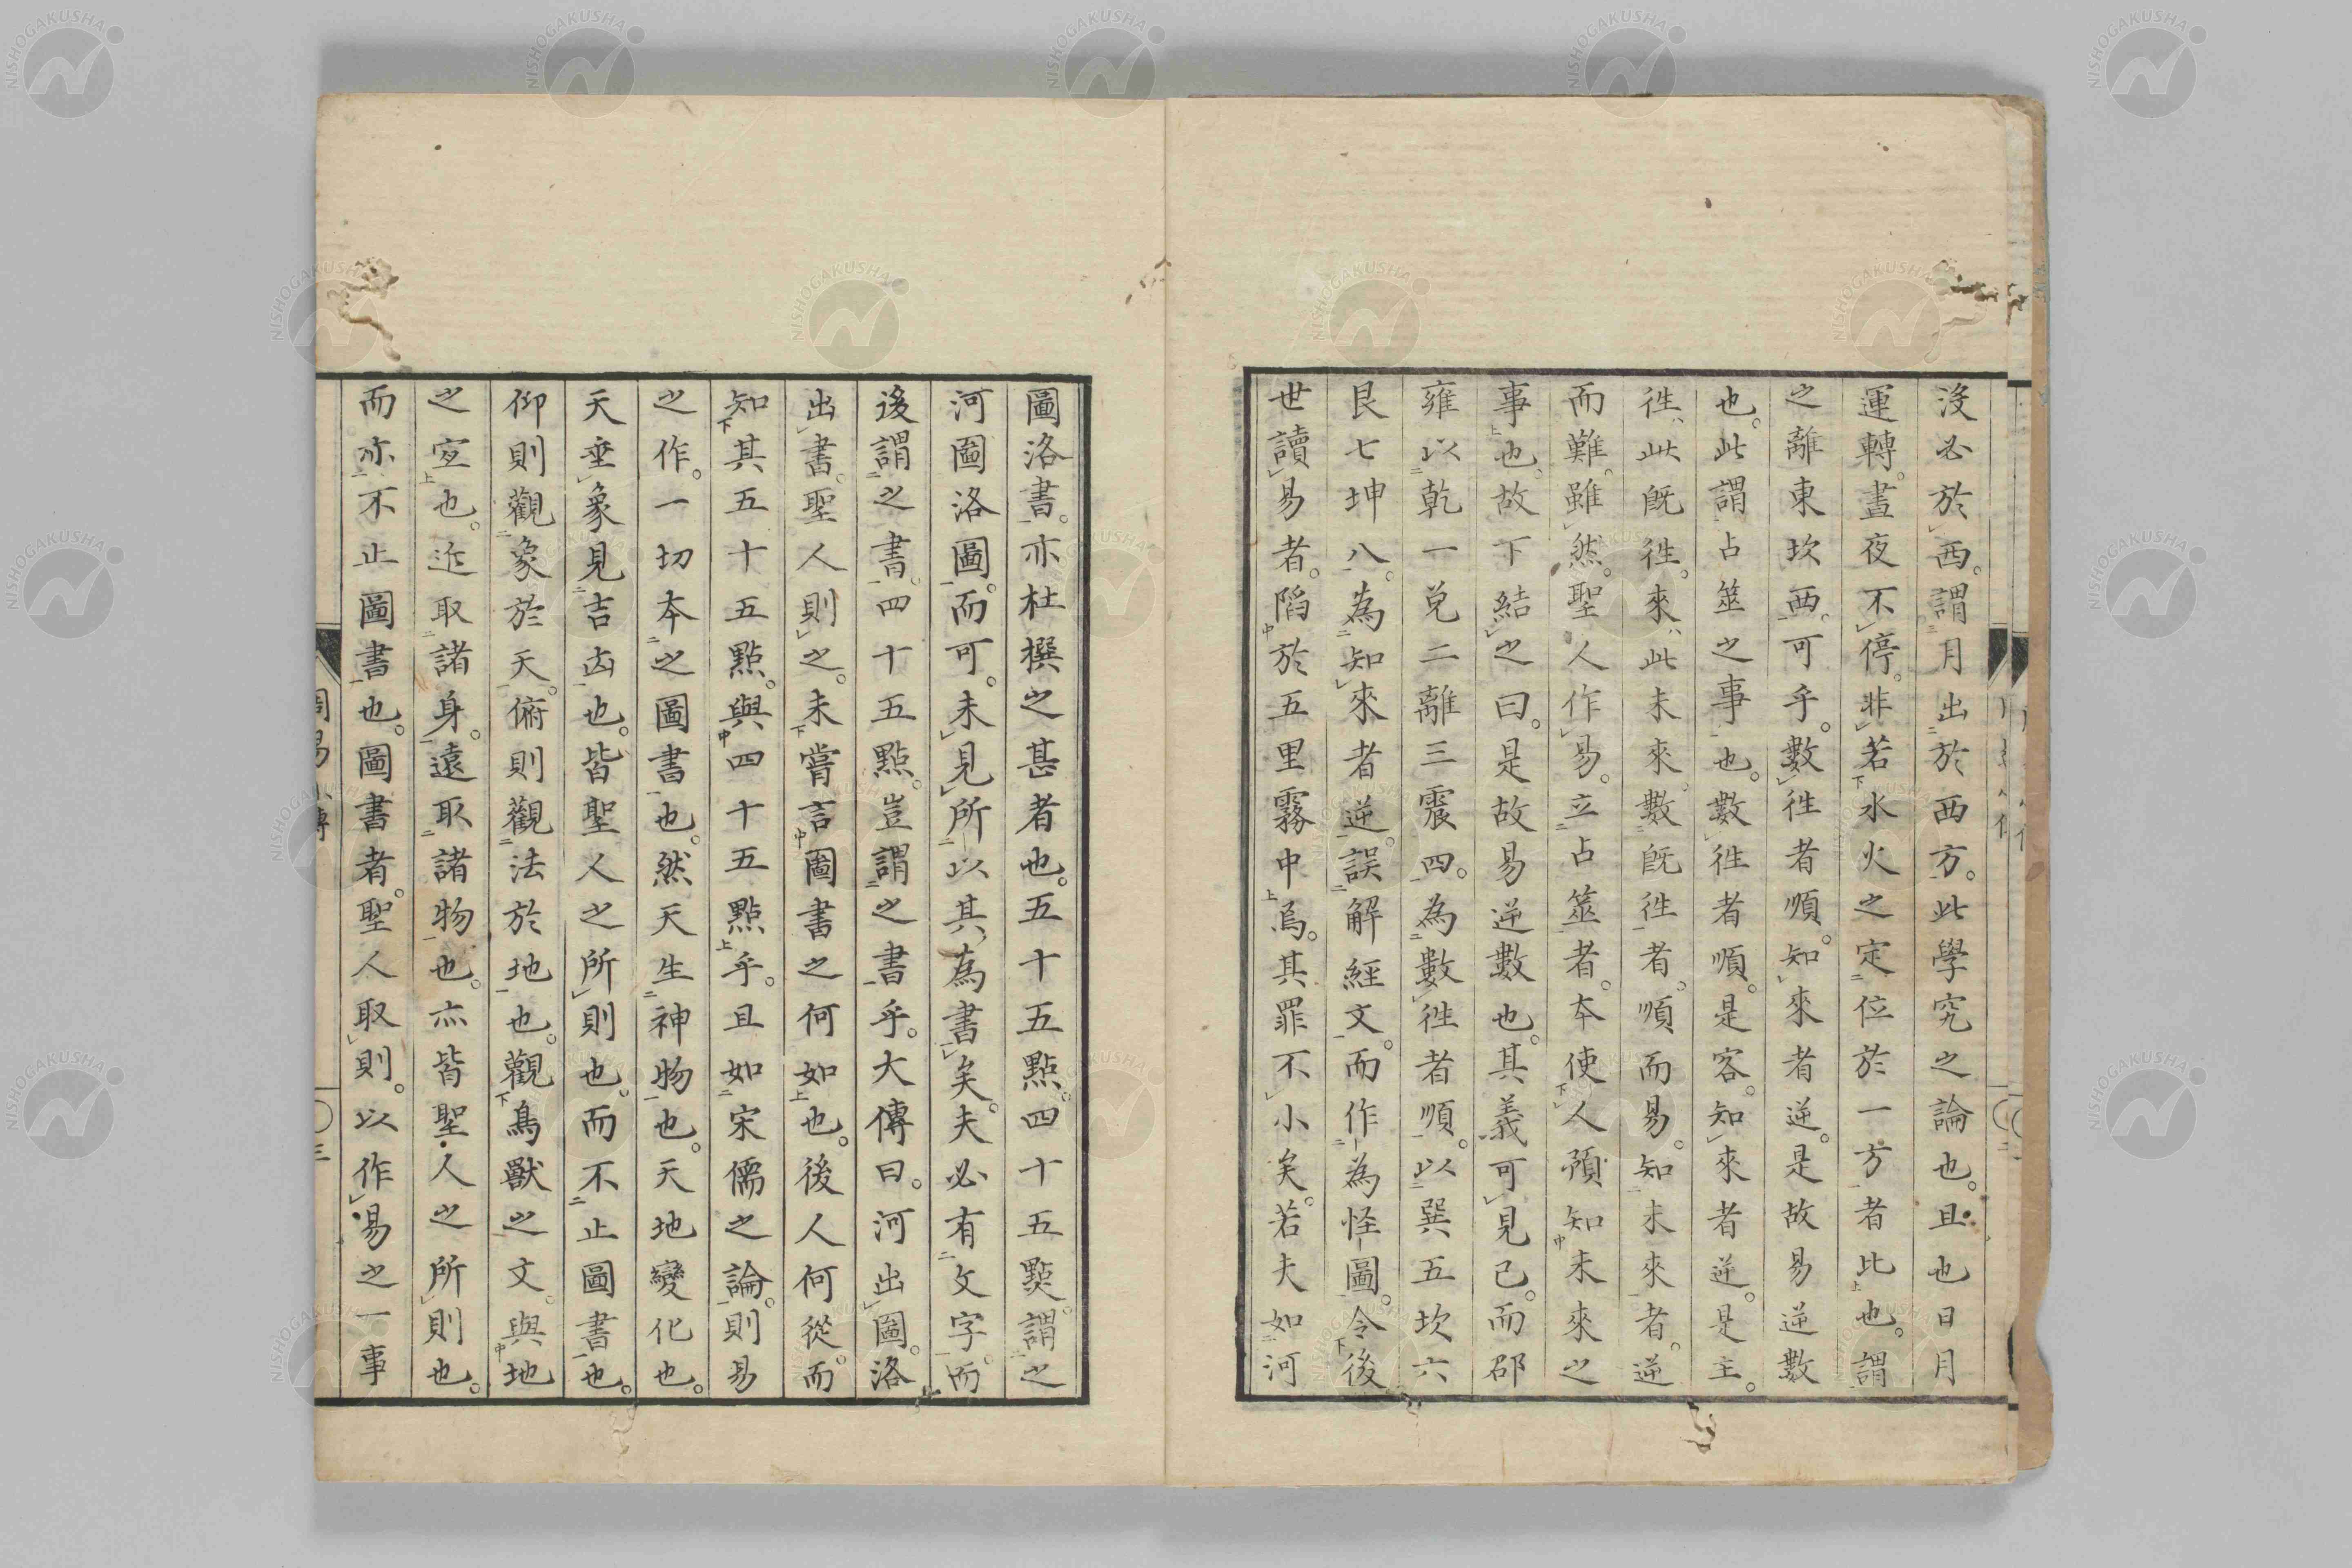 沒必於西。謂月出於西方。此學究之論也。且也日月
運轉。晝夜不停。非若水火之定位於一方者比也。謂
之離東坎西。可乎。數往者順。知來者逆。是故易逆數
也。此謂占筮之事也。數往者順。是客。知來者逆。是主。
往、此既往。來、此未來。數既往者。順而易。知未來者。逆
而難。雖然。聖人作易。立占筮者。本使人預知未來之
事也。故下結之曰。是故易逆數也。其義可見已。而邵
雍以乾一兌二離三震四。為數往者順。以巽五坎六
艮七坤八。為知來者逆。誤解經文。而作為怪圖。令後
世讀易者。陷於五里霧中焉。其罪不小矣。若夫如河
圖洛書。亦杜撰之甚者也。五十五點。四十五點。謂之
河圖洛圖。而可。未見所以其為書矣。夫必有文字。而
後謂之書。四十五點。豈謂之書乎。大傳曰。河出圖。洛
出書。聖人則之。未嘗言圖書之何如也。後人何從而
知其五十五點。與四十五點乎。且如宋儒之論。則易
之作。一切本之圖書也。然天生神物也。天地變化也。
天垂象見吉凶也。皆聖人之所則也。而不止圖書也。
仰則觀象於天。俯則觀法於地也。觀鳥獸之文。與地
之宜也。近取諸身。遠取諸物也。亦皆聖人之所則也。
而亦不止圖書也。圖書者。聖人取則。以作易之一事
NISHOGAKUSHA